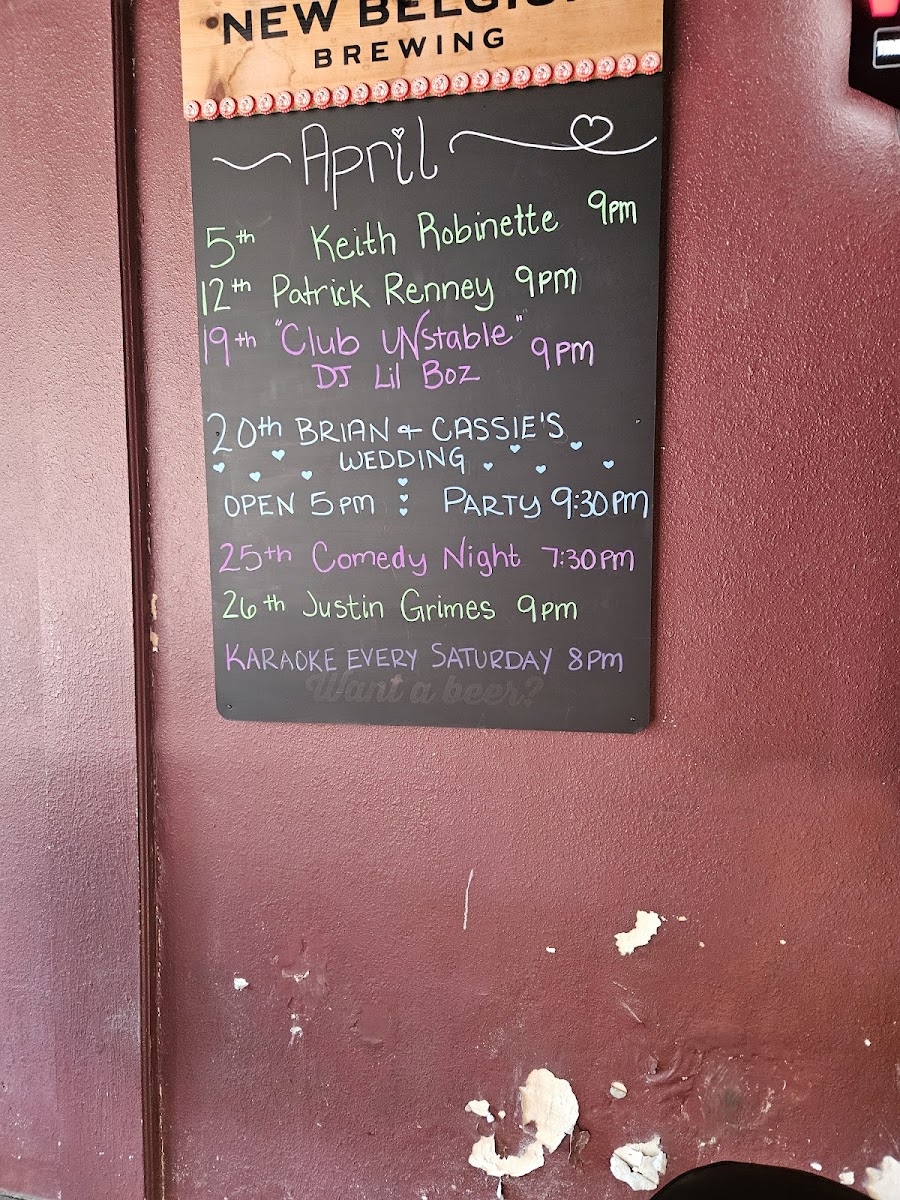 NEW BELGIUM
BREWING
April
5th Keith Robinette 9pm
12th Patrick Renney 9pm
19th "Club UNstable" 9pm
DJ Lil Boz
20th BRIAN + CASSIE'S
WEDDING
OPEN 5pm : PARTY 9:30PM
25th Comedy Night 7:30PM
26th Justin Grimes 9pm
KARAOKE EVERY SATURDAY 8PM
Want a beer?